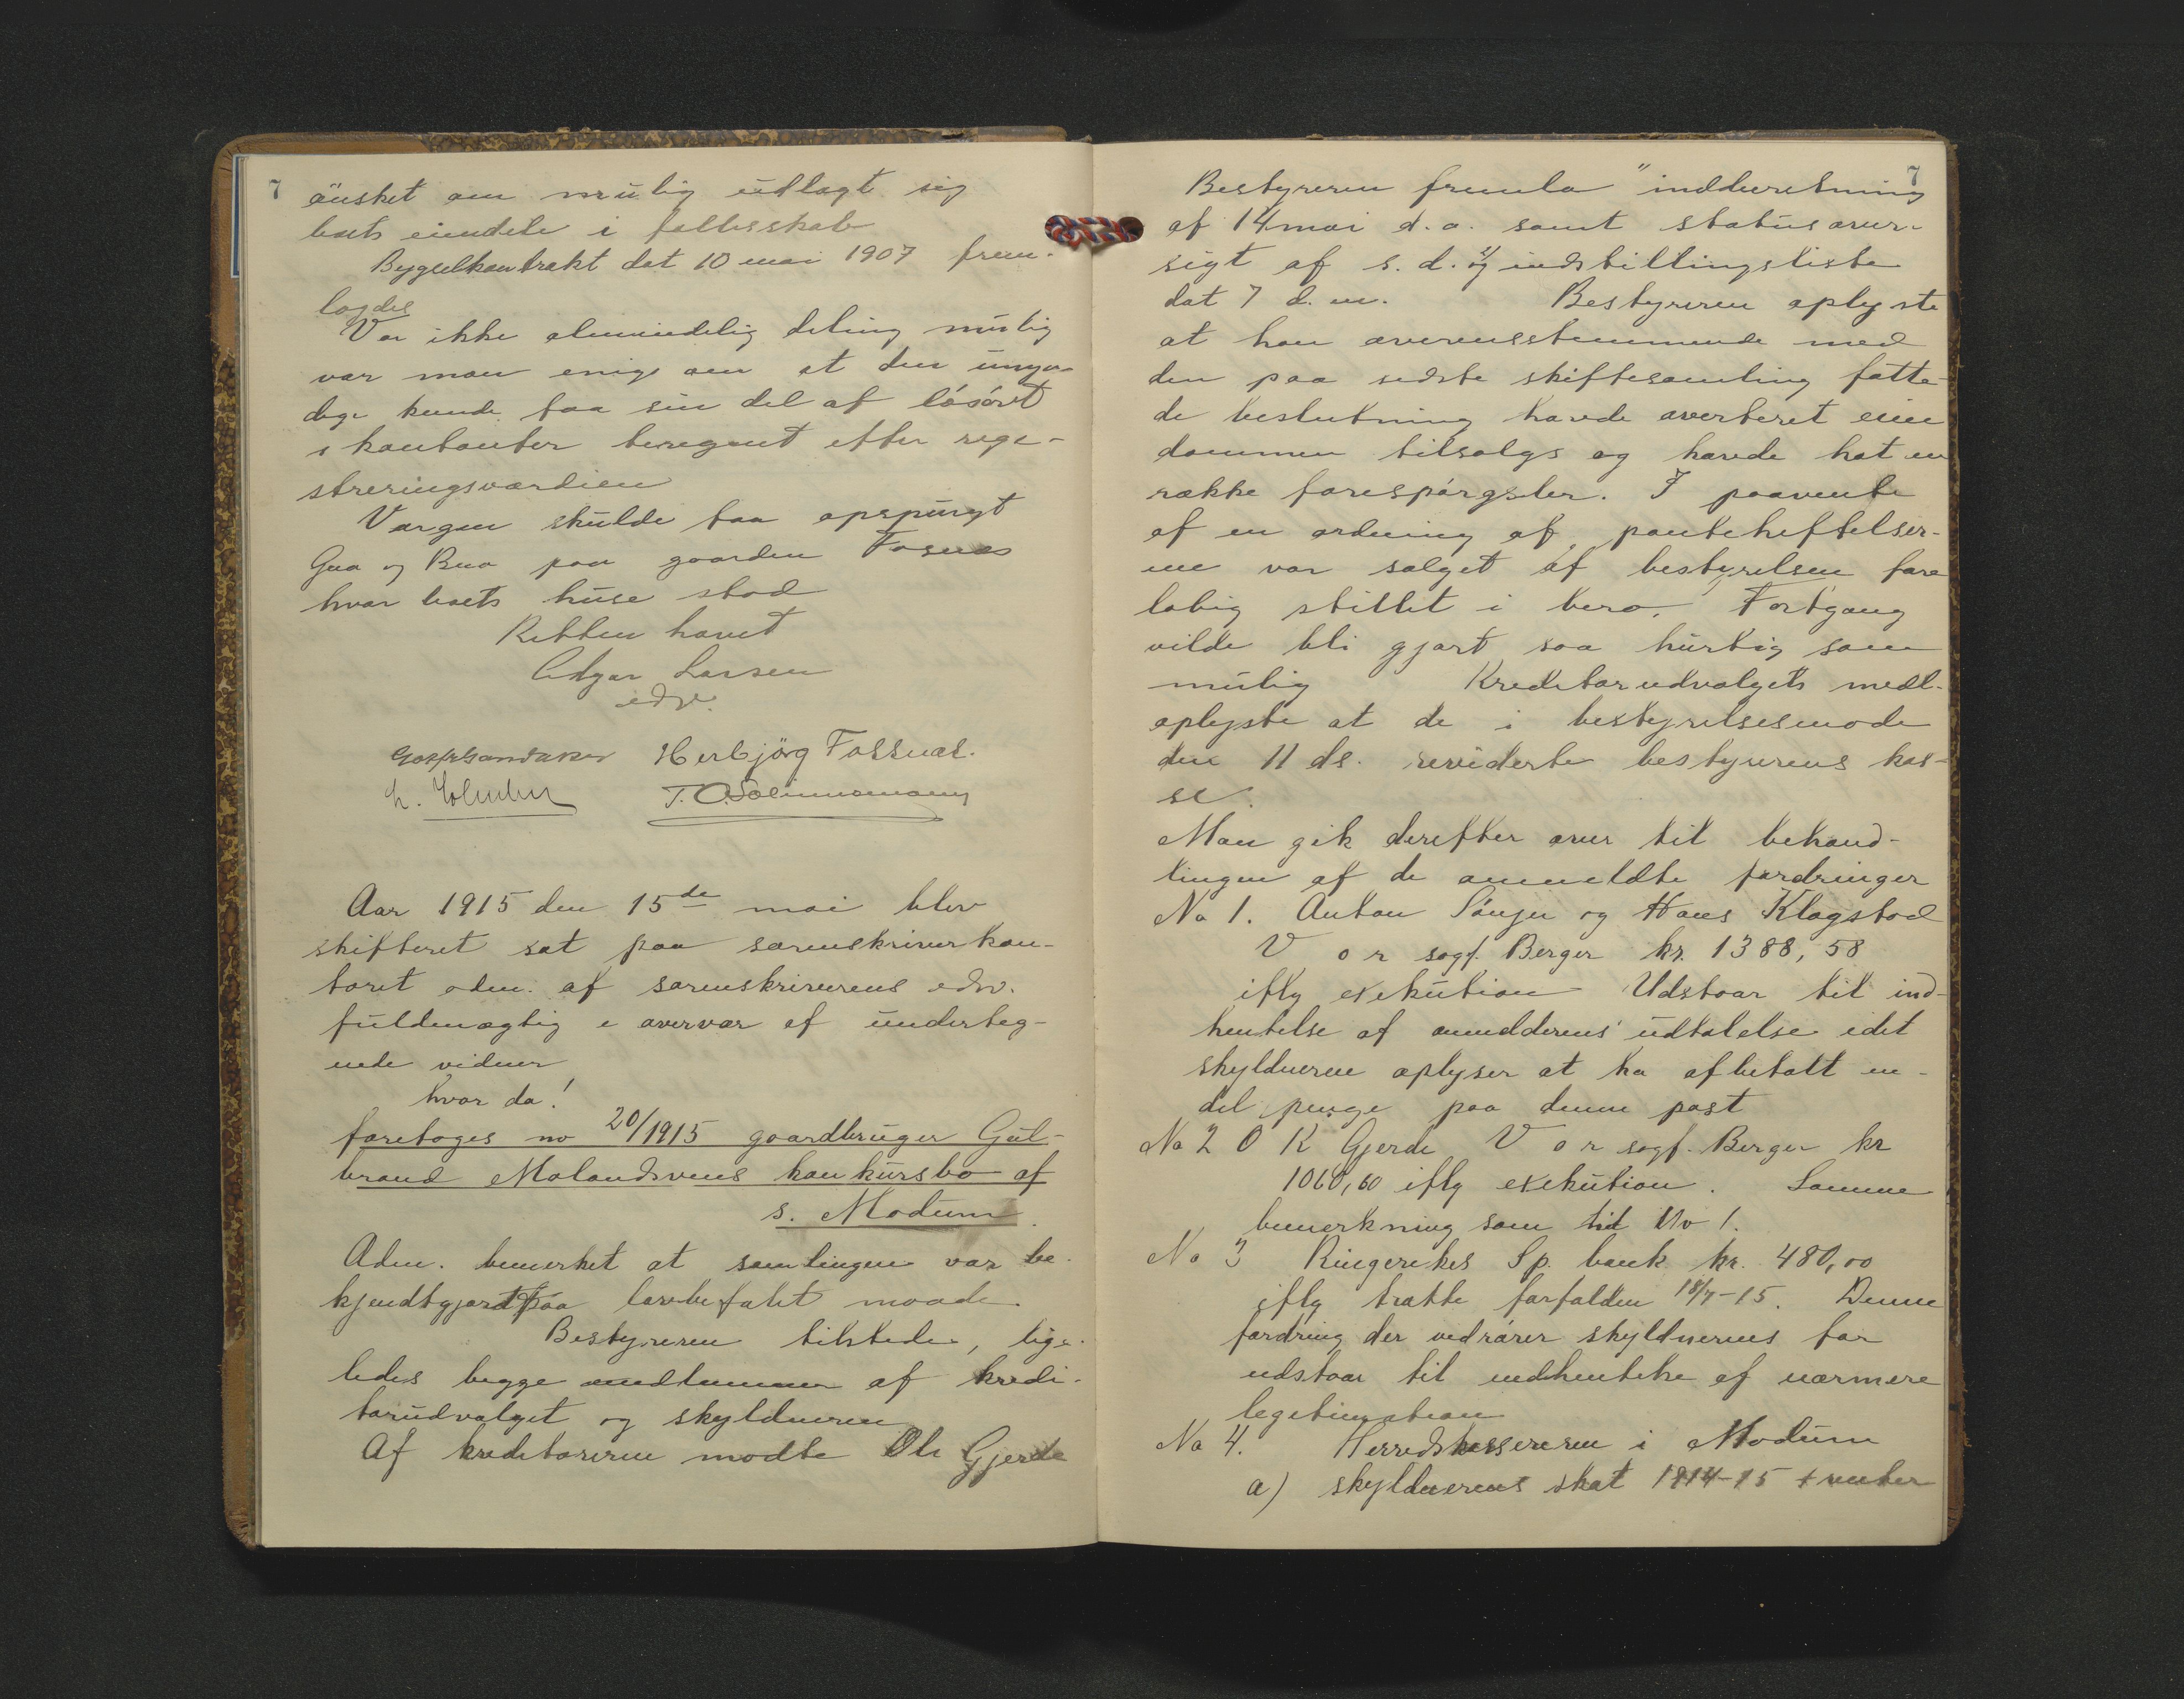 7
ønsket om mulig utlagt sig
boets eiendele i fellesskab
Bygselkontrakt dat 10 mai 1907 frem-
lagdes
Var ikke almindelig deling mulig
var man enige om at den umyn-
dige kunde faa sin del af løsøret
i kontanter beregnet efter regi-
streringsværdien
Vergen skulde faa opspurgt
Gna og Bno paa gaarden Fosnæs
hvor boets huse stod
Retten hævet
Edgar Larsen
edsv.
Herbjörg Fossnæs.
Aar 1915 den 15de mai blev
skifteret sat paa sorenskriverkon-
toret adm. af sorenskriverens edsv.
fuldmægtig i overvær af underteg-
nede vidner
hvor da!
foretoges no 20/1915 gaardbruger Gul-
brand Molandsveens konkursbo af
s. Modum
Adm. bemerket at samlingen var be-
kjendtgjort paa lovbefalet maade.
Bestyreren tilstede, lige-
ledes begge medlemmer af kredi-
torudvalget og skyldneren
Af kreditorerne mødte Ole Gjerde
7
Bestyreren fremla indberetning
af 14 mai d.a. samt statusover-
sigt af s.d. og indstillingsliste
dat 7 d.m. Bestyreren oplyste
at han overensstemmende med
den paa sidste skiftesamling fatte-
de beslutning havde averteret eien
dommen tilsalgs og havde hat en
række forespørgsler. I paavente
af en ordning af pantehæftelser-
ne var salget af bestyrelsen fore
løbig stillet i bero. Fortgang
vilde bli gjort saa hurtig som
mulig Kreditorudvalgets medl.
oplyste at de i bestyrelsesmøde
den 11 ds. reviderte bestyrerens kas-
se.
Man gik derefter over til behand-
lingen af de anmeldte fordringer
No 1. Anton Sønju og Hans Klagstad
V o r sagf. Berger kr. 1388,58
iflg exekution Udstaar til ind-
hentelse af anmelderens udtalelse idet
skyldneren oplyser at ha afbetalt en-
del penge paa denne post
No 2 O K Gjerde V o r sagf. Berger kr
1060,60 iflg exekution. Samme
bemerkning som til No 1.
No 3 Ringerikes Sp. bank kr. 480,00
iflg tratte forfalden 18/7-15. Denne
fordring der vedrører skyldnerens far
udstaar til indhentelse af nærmere
legitimation
No 4. Herredskassereren i Modum
a) skyldnerens skat 1914-15 + renter